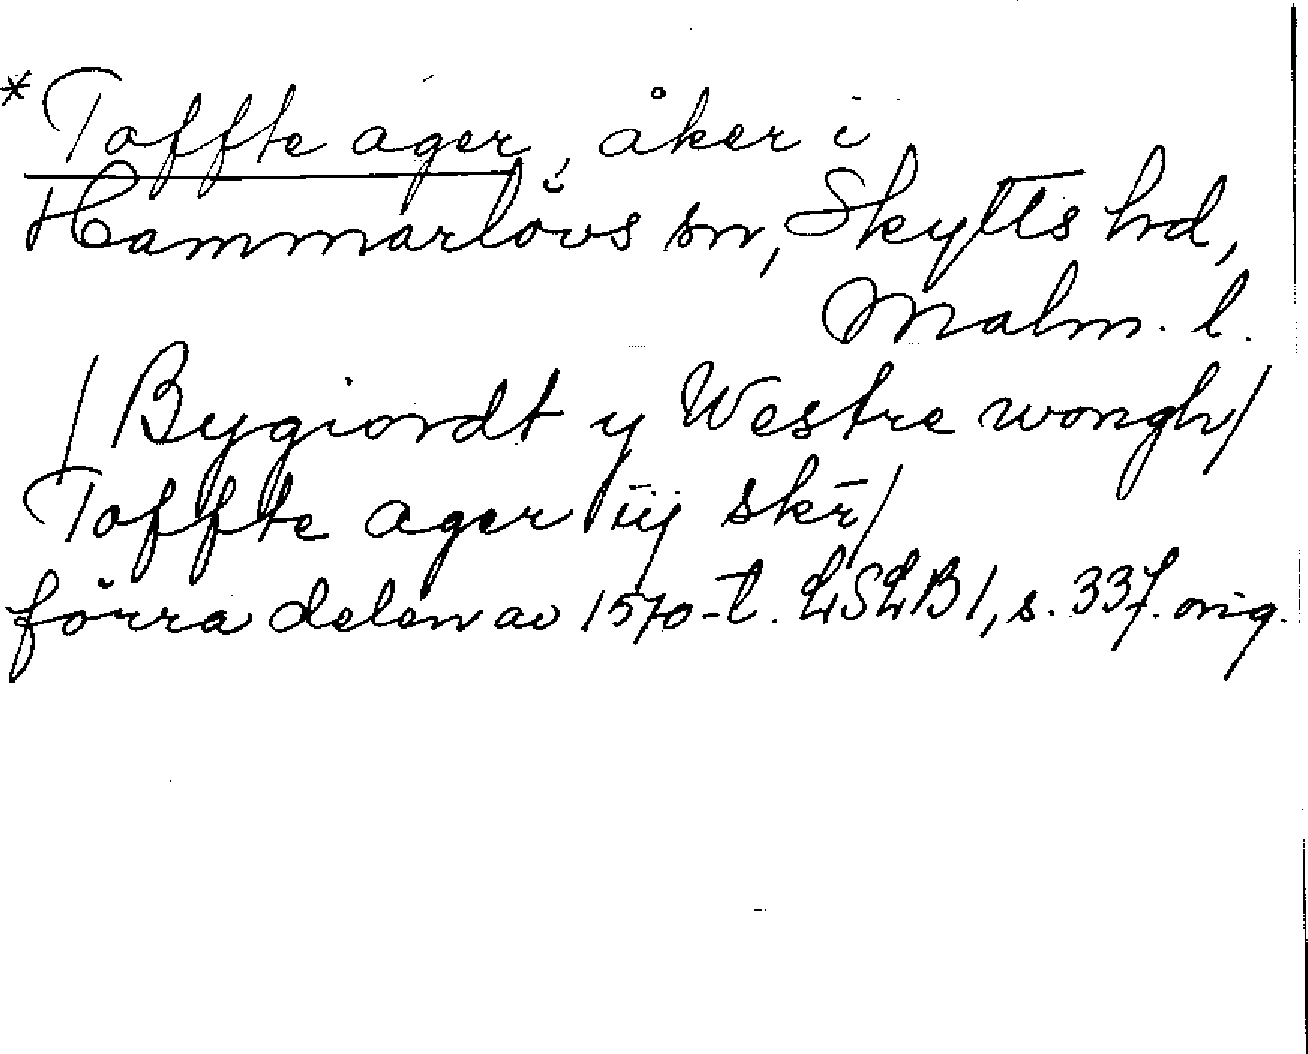 *Toffte ager, åker i
Hammarlövs sn, Skytts hd,
Malm. l.
/Bygiordt y Westre wongh/
Toffte ager iij skr̄/
förra delen av 1570-t. LSLB1, s. 337. orig.